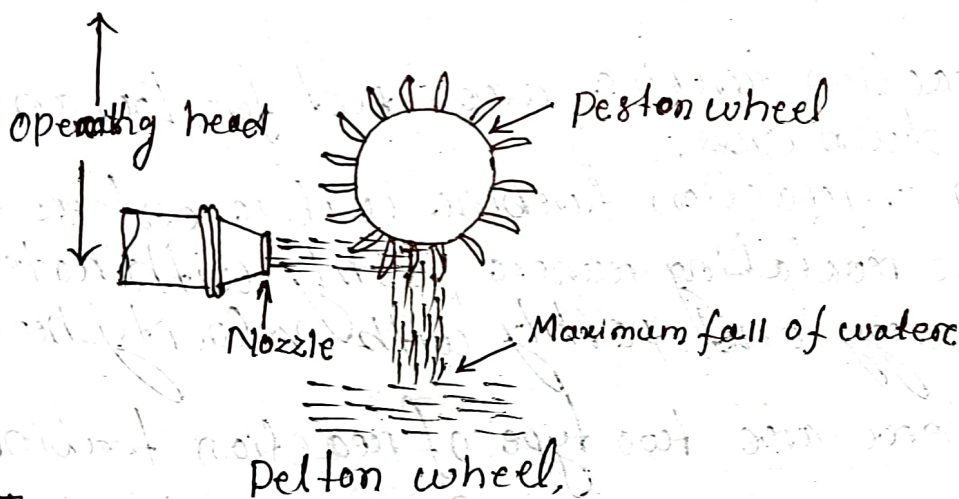 Operating head
Peston wheel
Nozzle
Maximum fall of watere
Pelton wheel,